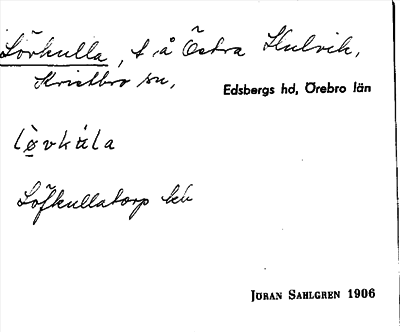 Lövkulla, t å Östra Hulvik,
Kristbro sn,
Edsbergs hd, Örebro län
lø̀vkùla
Löfkullatorp kb
JÖRAN SAHLGREN 1906